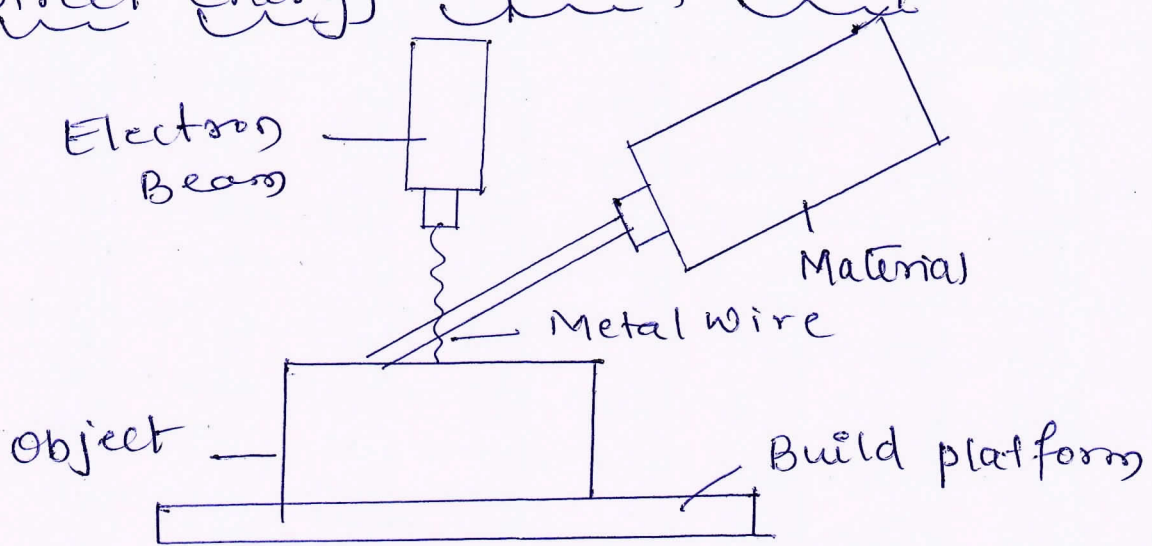 Energy
Electron
Beam
Material
Metal Wire
Object
Build platform